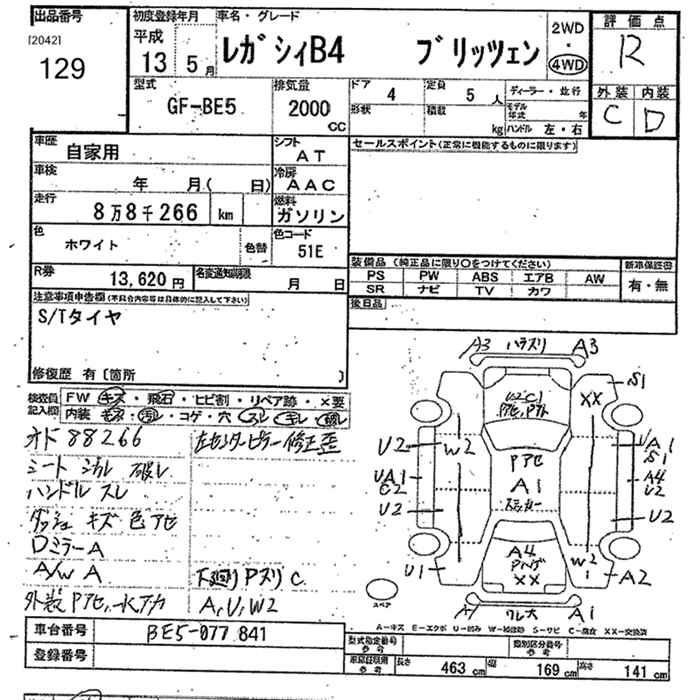 出品番号
[2042]
129
初度登録年月
平成
13 5 月
車名・グレード
レガシィB4 ブリッツェン
2WD
・
4WD
評価点
R
外装 内装
C D
型式
GF-BE5
排気量
2000
CC
ドア 4
定員 5 人
形状
積載 kg
ディーラー・並行
モデル年式 年
ハンドル 左・右
車歴 自家用
シフト AT
車検 年 月( 日)
冷房 AAC
走行 8万8千266 km
燃料 ガソリン
色 ホワイト 色替
色コード 51E
R券 13,620円
名変通知期限 月 日
セールスポイント(正常に機能するものに限ります)
装備品 (純正品に限り○をつけてください)
PS PW ABS エアB AW
SR ナビ TV カワ
新車保証書
有・無
後日品
注意事項申告欄(不具合内容等は具体的に記入して下さい)
S/Tタイヤ
修復歴 有 [箇所 ]
検査員記入欄
FW キズ・飛石・ヒビ割・リペア跡・×要
内装・モネ・汚レ・コゲ・穴・スレ・キレ・破レ
オド 88266
左センターピラー修正歪
シート シカレ 破レ
ハンドル スレ
ダッシュ キズ 色アセ
Dミラー A
A/W A
下廻り Pスリ C
外装 Pアセ、水アカ
A,U,W2
A3 ハラスリ A3
S1
U2 C1
XX
U2
W2
Pアセ
A1
UA1
C2
U2
U/A1
S1
A4
U2
U2
ステッカー
A4
XX
W2
U1
A2
スペア
A1 ワレ大 A1
A-キズ E-エクボ U-凹み W-補修跡 S-サビ C-腐食 XX-交換済
車台番号 BE5-077841
登録番号
型式指定番号 参考
類別区分番号 参考
車庫証明用 参考
長さ 463 cm
幅 169 cm
高さ 141 cm